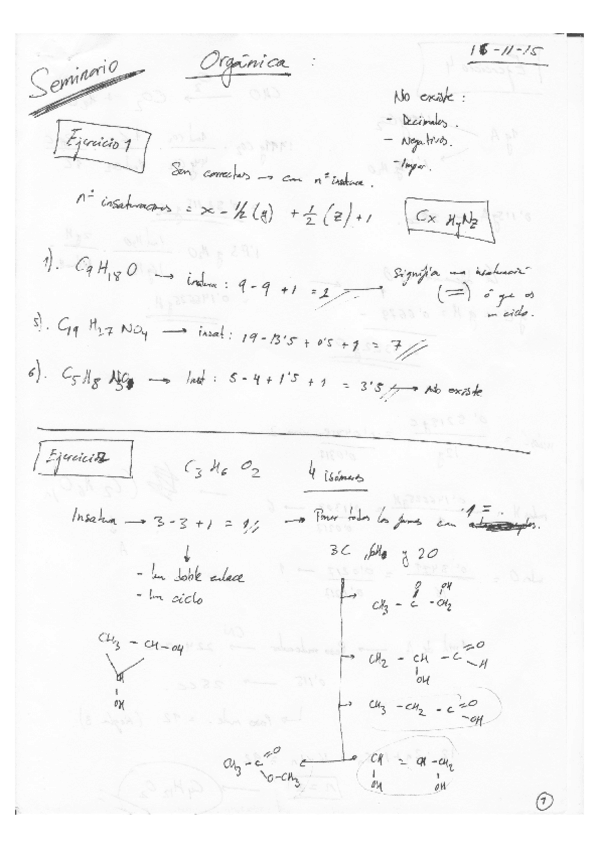 Seminario
Orgánica :
16-11-15
No existe :
- Decimales.
- Negativos.
- Impar.
Ejercicio 1
Son correctas → con nº insatura.
nº insaturaciones = x - 1/2 (y) + 1/2 (z) + 1
Cx HyNz
1). C9H18O → insatura : 9 - 9 + 1 = 1
Significa una insaturación
(=) ó que es
un ciclo.
5). C19 H27 NO4 → insat : 19 - 13'5 + 0'5 + 1 = 7
6). C5H8 N3 → Inst : 5 - 4 + 1'5 + 1 = 3'5 → No existe
Ejercicio 2
C3 H6 O2
4 isómeros
Insatura → 3 - 3 + 1 = 1 → Poner todas las formas con 1 = .
3C, 6H y 2O
- Un doble enlace
- Un ciclo
CH3 - C - CH2
O
OH
CH3 - CH - OH
CH
OH
CH2 - CH - C
OH
O
H
CH3 - CH2 - C
O
OH
CH3 - C
O
O - CH3
CH = CH - CH2
OH
OH
1